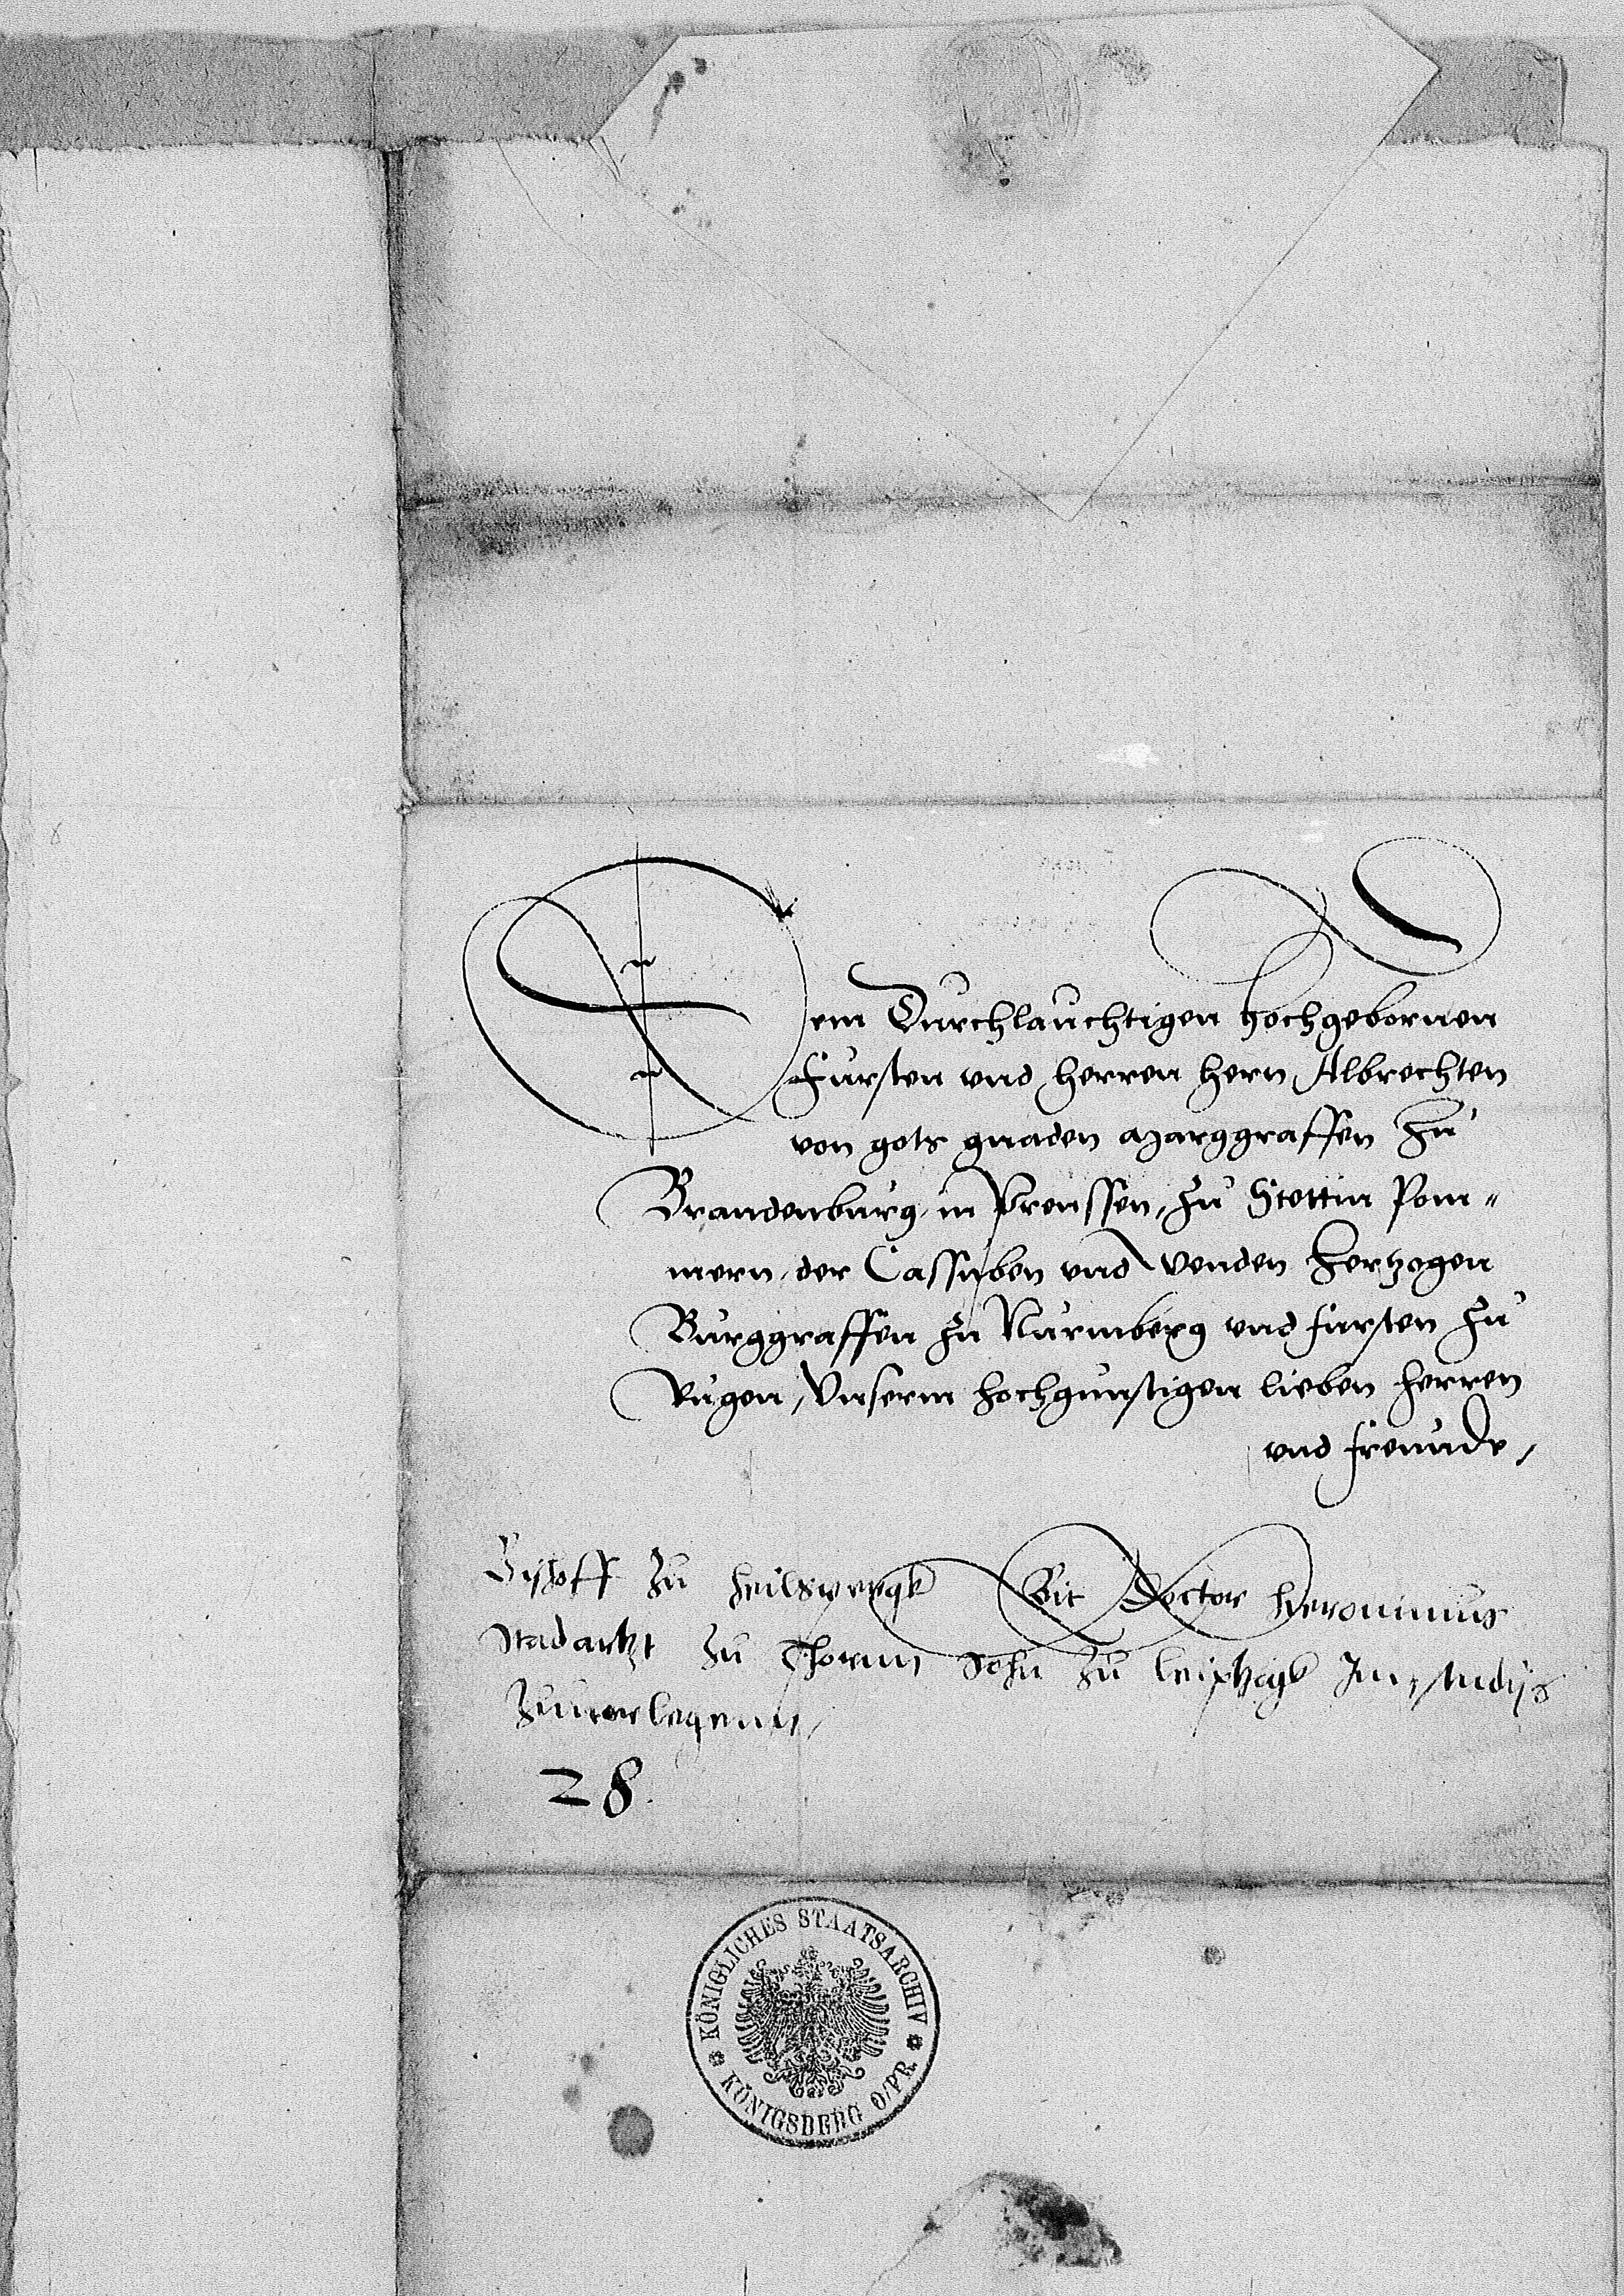 Dem Durchlauchtigen hochgebornen
Fursten vnd herren hern Albrechten
von gots gnaden Marggraffen Zu
Brandenburg, in Preussen, Zu Stettin Pom„
mern, der Cassuben vnd Wenden Hertzogen
Burggraffen Zu Nurmberg vnd fursten Zu
Rugen, Vnserm hochgunstigen lieben herren
vnd freunde,
Bischoff Zu Heilspergk Bit Doctor Hyeronimus
Stadartzt Zu Thorun Sohn Zu leiptzigk Im studijs
Zuuorlegenn,
28.
KÖNIGLICHES STAATSARCHIV
KÖNIGSBERG O/PR